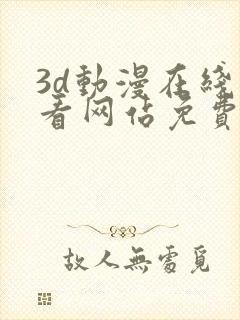 3d動漫在綫
看网佔免費
故人無處覓